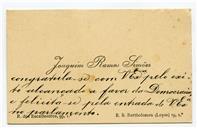 Joaquim Ramos Simões
congratula-se com V.Exª pelo exi-
to alcançado a favor da Democracia
e felicita-se pela entrada de V.Exª
no parlamento.
R. dos Escudeiros, 19, 1.º
R. S. Bartholomeu (Lopes) 19, 1.º